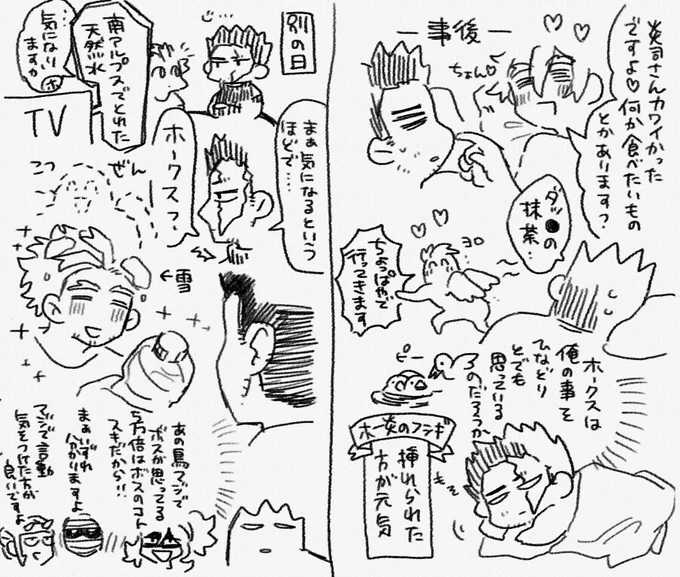 炎司さんカワイかった
ですよ♡何か食べたいもの
とかありますか?
―事後―
ちょん
ダッ●の
抹茶…
ちょっぱやで
行ってきます
ホークスは
俺の事を
ひなどり
とでも
思っている
のだろうか
ピー
ホ―炎のフシギ
挿れられた
方が元気
別の日
南アルプスでとれた
天然水
気になり
ますか
TV
まぁ気になるという
ほどで……
ホークスっ、
こつ
ぜん
←雪
あの鳥マジで
ボスが思ってる
5万倍はボスのコト
スキだから!!
まぁいずれ
分かりますよ
マジで言動
気をつけた方が
良いですよ